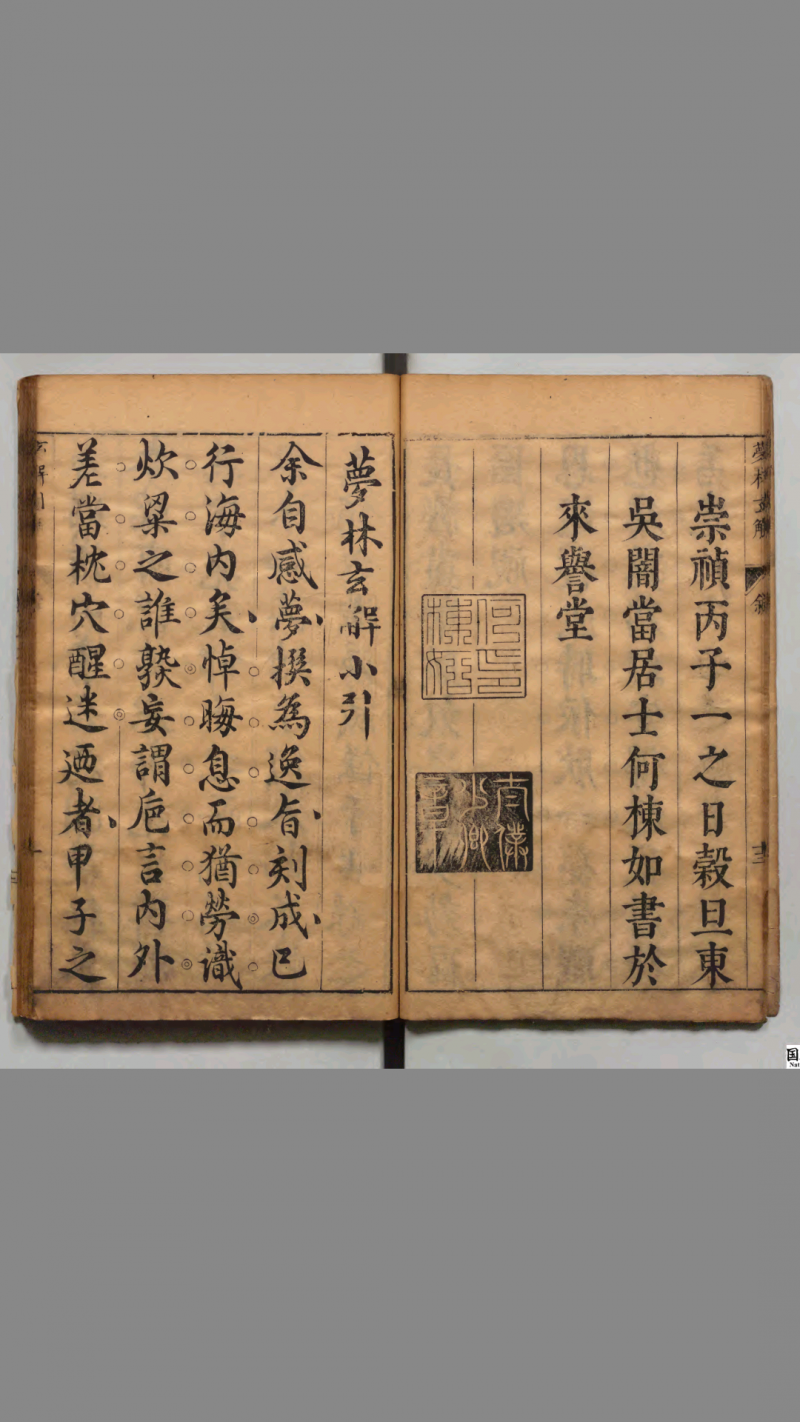 崇禎丙子一之日穀旦東
吳闇當居士何棟如書於
來譽堂
何印棟如
太僕少卿章
夢林玄解小引
余自感夢撰為逸旨刻成已
行海內矣悼晦息而猶勞識
炊粱之誰
妄謂巵言內外
差當枕穴醒迷迺者甲子之
夢林玄解
叙
国
Nat